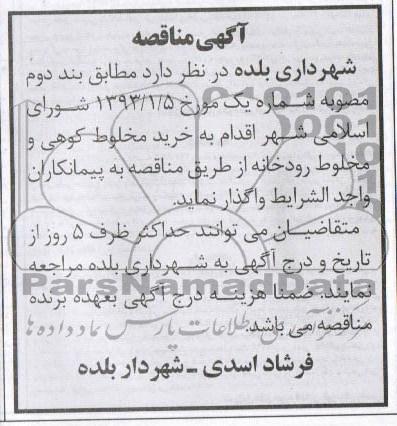 آگهی مناقصه
شهرداری بلده در نظر دارد مطابق بند دوم
مصوبه شماره یک مورخ ۱۳۹۳/۱/۵ شورای
اسلامی شهر اقدام به خرید مخلوط کوهی و
مخلوط رودخانه از طریق مناقصه به پیمانکاران
واجد الشرایط واگذار نماید.
متقاضیان می توانند حداکثر ظرف ۵ روز از
تاریخ و درج آگهی به شهرداری بلده مراجعه
نمایند. ضمنا هزینه درج آگهی بعهده برنده
مناقصه می باشد.
فرشاد اسدی - شهردار بلده
ParsNamadData